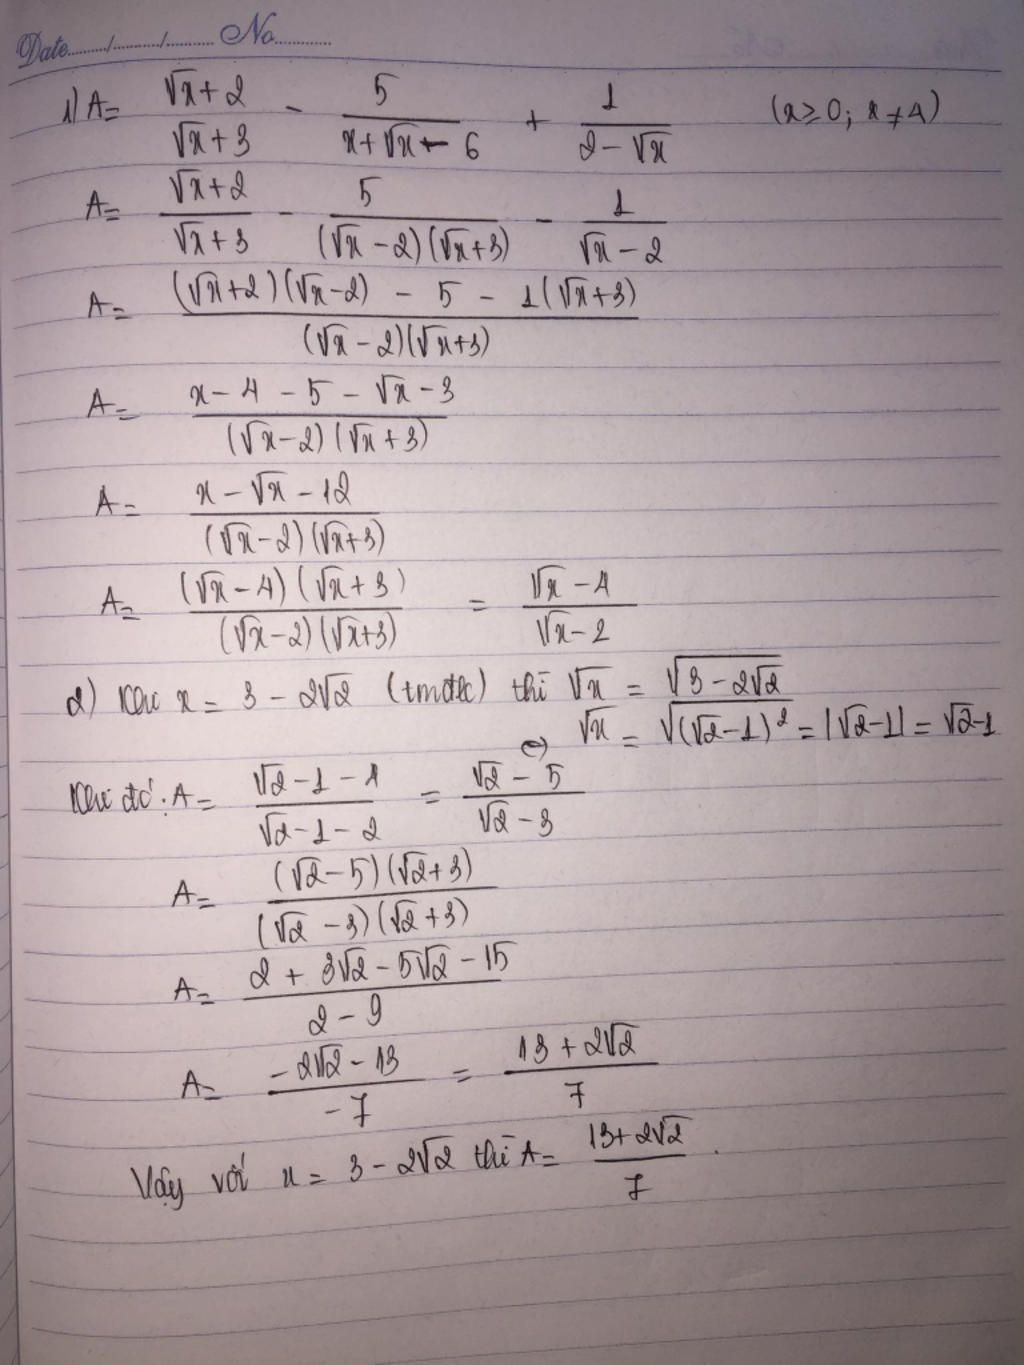 Date......../........../.......... No............
1) A = (√x + 2)/(√x + 3) - 5/(x + √x - 6) + 1/(2 - √x) (x ≥ 0; x ≠ 4)
A = (√x + 2)/(√x + 3) - 5/((√x - 2)(√x + 3)) - 1/(√x - 2)
A = ((√x + 2)(√x - 2) - 5 - 1(√x + 3))/((√x - 2)(√x + 3))
A = (x - 4 - 5 - √x - 3)/((√x - 2)(√x + 3))
A = (x - √x - 12)/((√x - 2)(√x + 3))
A = ((√x - 4)(√x + 3))/((√x - 2)(√x + 3)) = (√x - 4)/(√x - 2)
2) Khi x = 3 - 2√2 (tmđk) thì √x = √(3 - 2√2)
⇔ √x = √((√2 - 1)²) = |√2 - 1| = √2 - 1
Khi đó: A = (√2 - 1 - 4)/(√2 - 1 - 2) = (√2 - 5)/(√2 - 3)
A = ((√2 - 5)(√2 + 3))/((√2 - 3)(√2 + 3))
A = (2 + 3√2 - 5√2 - 15)/(2 - 9)
A = (-2√2 - 13)/(-7) = (13 + 2√2)/7
Vậy với x = 3 - 2√2 thì A = (13 + 2√2)/7.